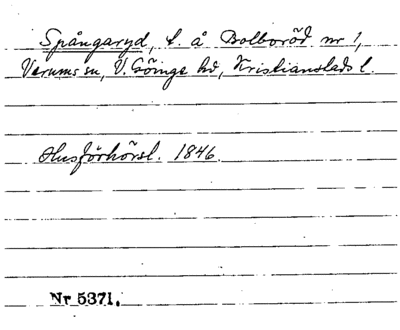 Spångaryd, t. å Bolboröd nr 1,
Verums sn, V. Göinge hd, Kristianstads l.
Husförhörsl. 1846.
Nr 5371.